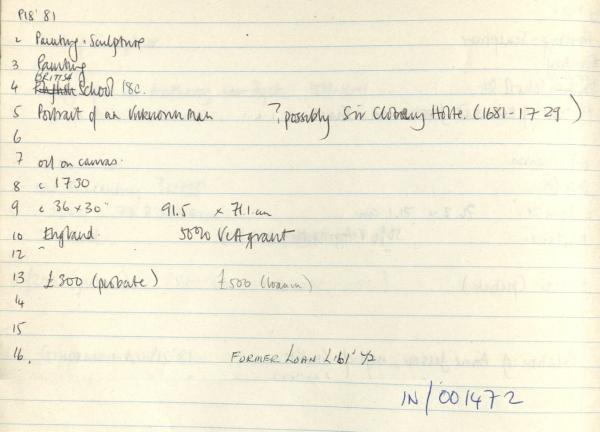 P18'81
2 Painting + Sculpture
3 Painting
4 English BRITISH School 18c.
5 Portrait of an Unknown Man ? possibly Sir Clobery Holte. (1681-1729)
6
7 oil on canvas.
8 c 1730
9 c 36 x 30" 91.5 x 71.1 cm
10 England. 50% V&A grant
12 "
13 £300 (probate) £500
14
15
16. FORMER LOAN L161'72
IN/001472